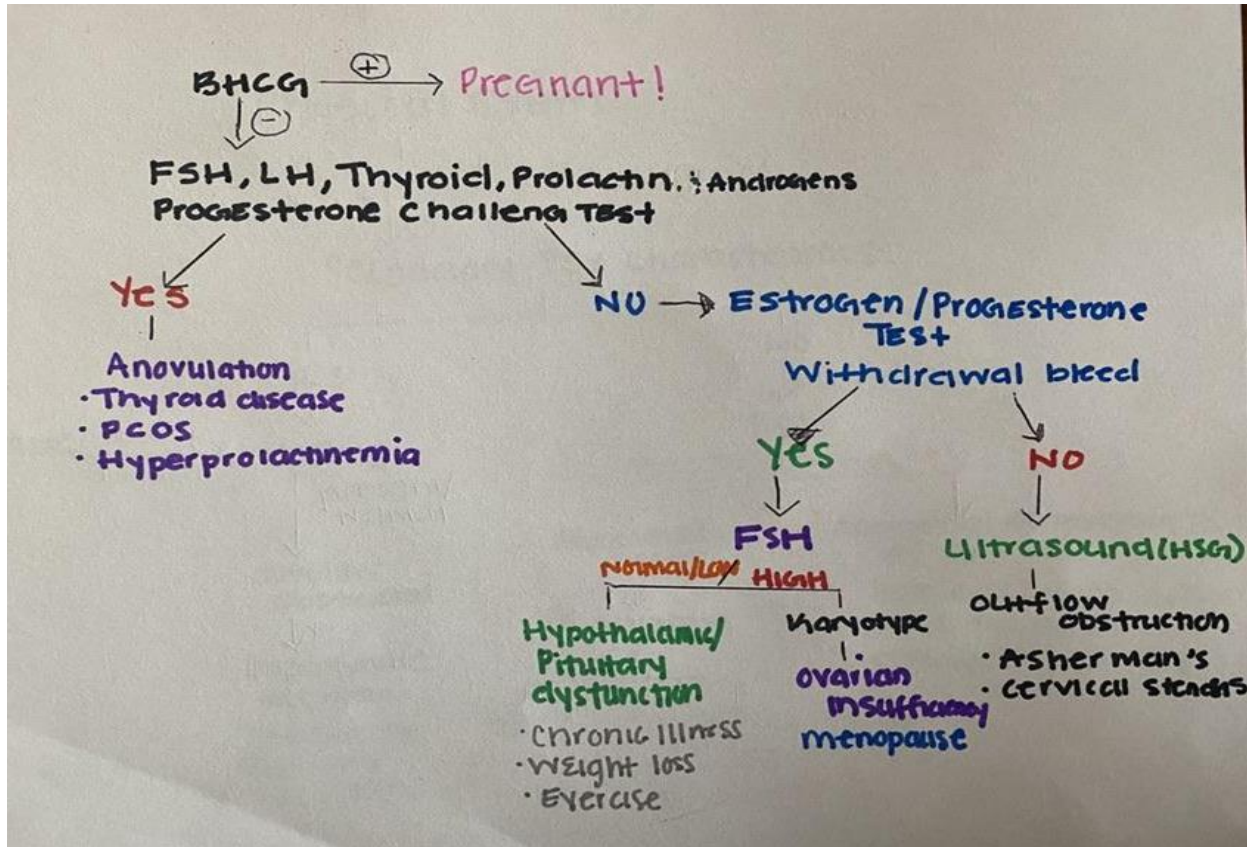 BHCG (+) Pregnant!
(-)
FSH, LH, Thyroid, Prolactin. & Androgens
Progesterone Challeng Test
Yes
Anovulation
· Thyroid disease
· PCOS
· Hyperprolactinemia
NO Estrogen/Progesterone
Test
Withdrawal bleed
Yes
FSH
Normal/Low HIGH
Hypothalamic/
Pituitary
dysfunction
· Chronic Illness
· Weight loss
· Exercise
Karyotype
ovarian
insufficiency
menopause
NO
Ultrasound(HSG)
outflow
obstruction
· Asherman's
· cervical stenosis